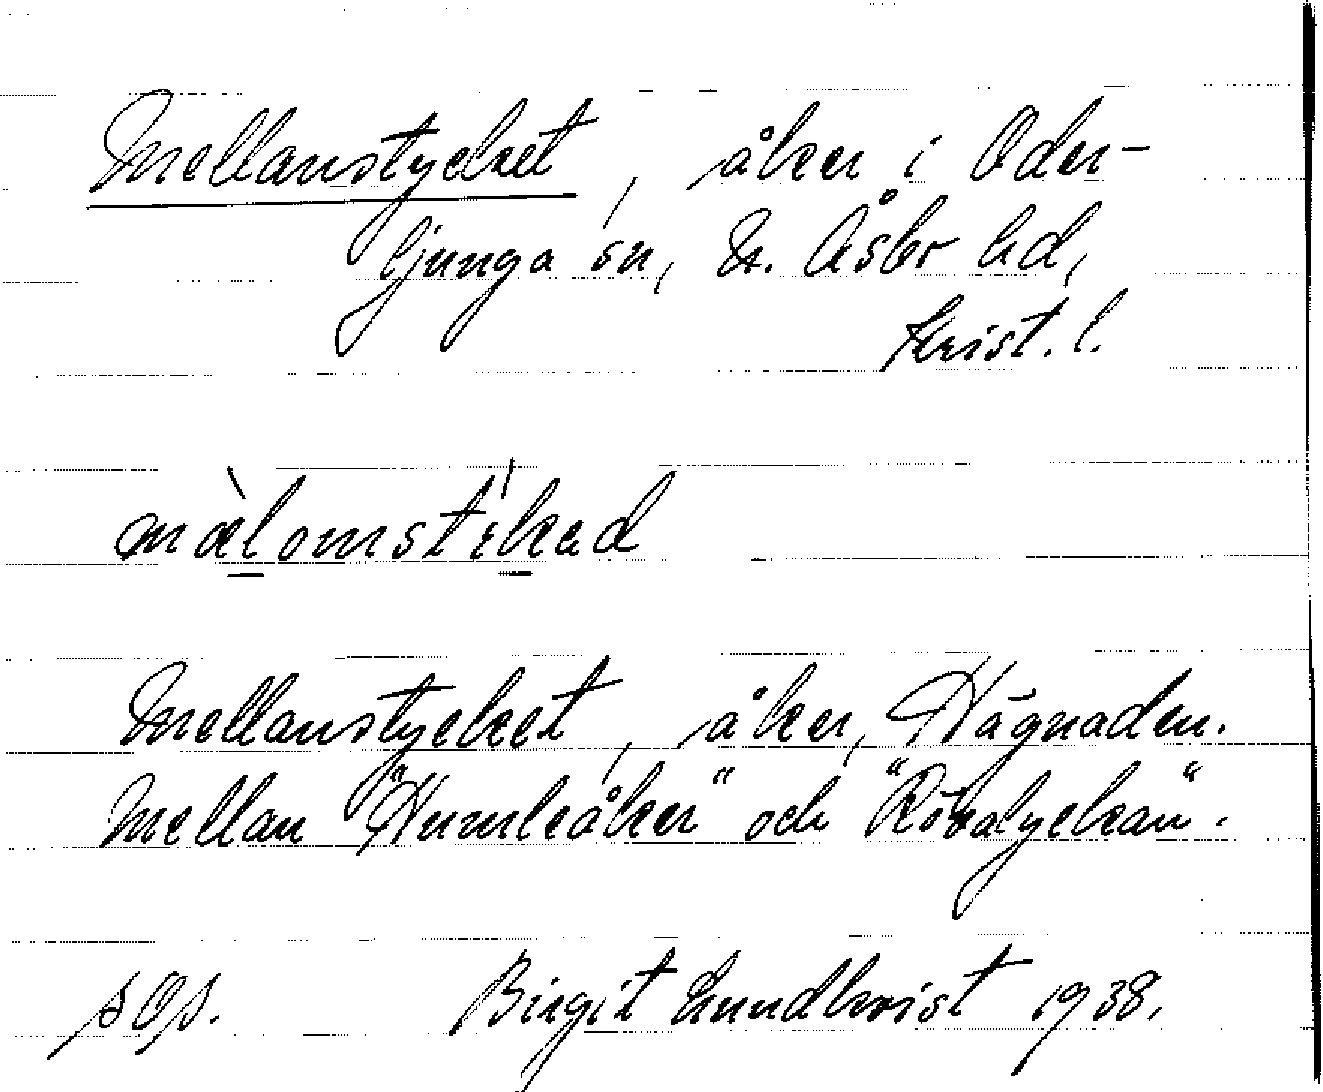 Mellanstycket, åker i Oder-
ljunga sn, N. Åsbo hd,
Krist. l.
mælomstikad
Mellanstycket, åker, Hägnaden.
Mellan "Humleåker" och "Rövalyckan".
s Ops. Birgit Lundkvist 1938.